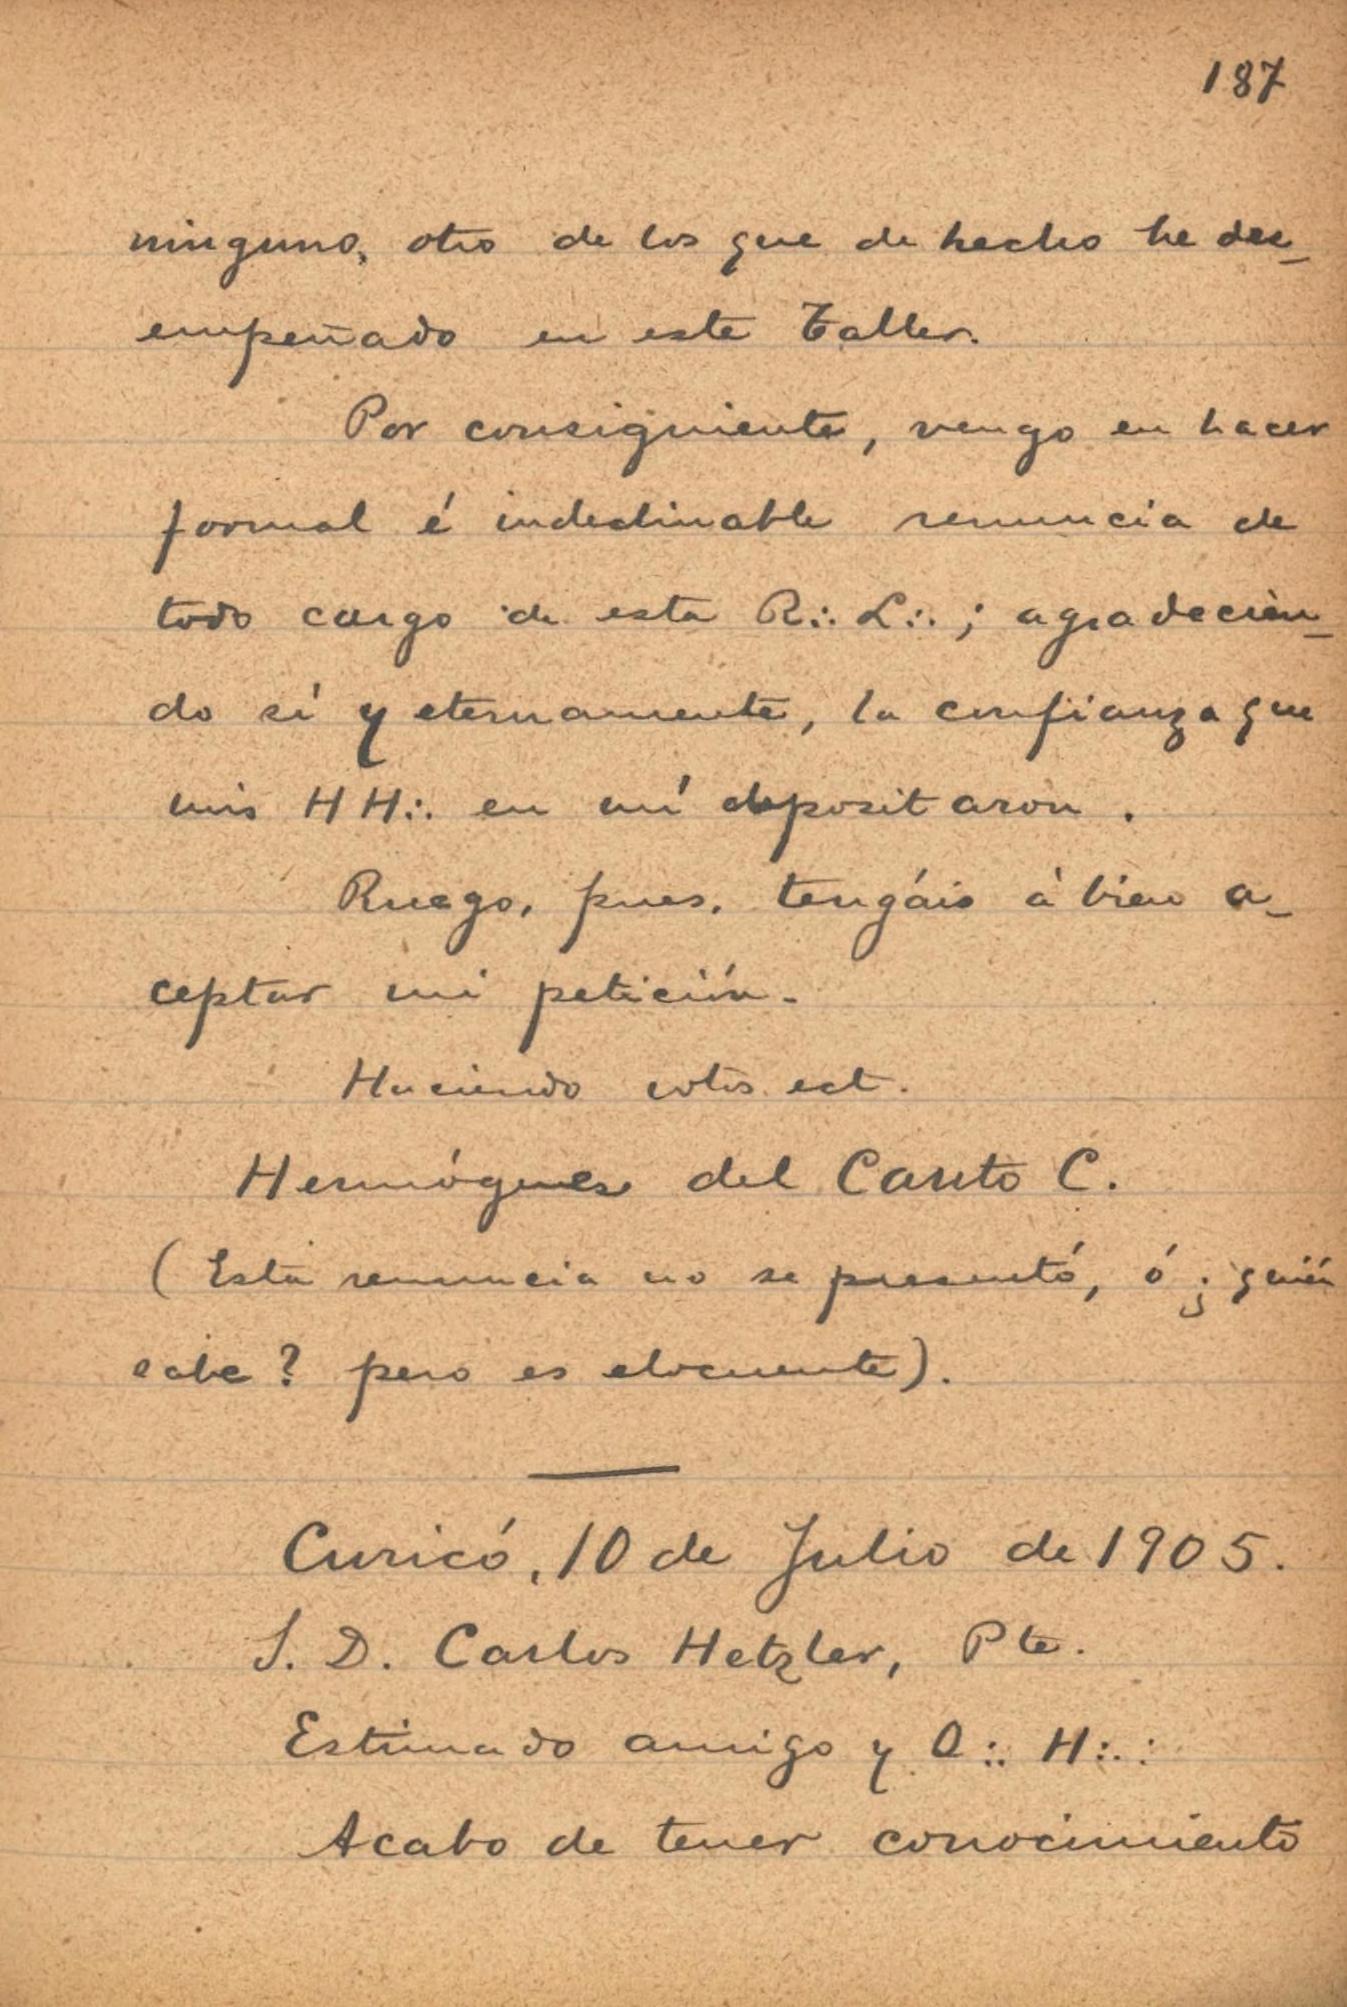 187
ninguno, otro de los que de hecho he des-
empeñado en este Taller.
Por consiguiente, vengo en hacer
formal é indeclinable renuncia de
todo cargo de esta R∴ L∴; agradecién-
do sí y eternamente, la confianza que
mis HH∴ en mí depositaron.
Ruego, pues, tengáis á bien a-
ceptar mi petición.
Haciendo votos ect.
Hermógenes del Canto C.
(Esta renuncia no se presentó, ó ¿quién
sabe? pero es elocuente).
Curicó, 10 de Julio de 1905.
S. D. Carlos Hetzler, Pte.
Estimado amigo y Q∴ H∴:
Acabo de tener conocimiento